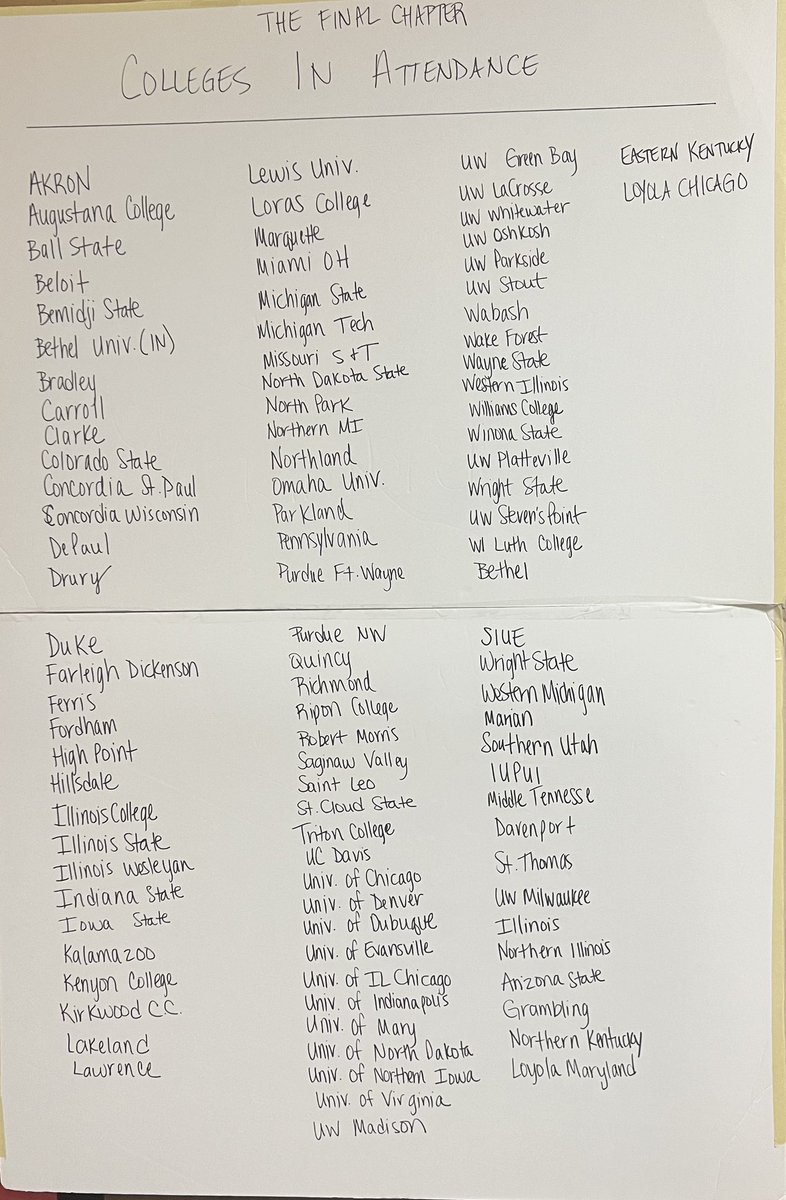 THE FINAL CHAPTER
COLLEGES IN ATTENDANCE
AKRON
Augustana College
Ball State
Beloit
Bemidji State
Bethel Univ. (IN)
Bradley
Carroll
Clarke
Colorado State
Concordia St. Paul
Concordia Wisconsin
DePaul
Drury
Lewis Univ.
Loras College
Marquette
Miami OH
Michigan State
Michigan Tech
Missouri S+T
North Dakota State
North Park
Northern MI
Northland
Omaha Univ.
Parkland
Pennsylvania
Purdue Ft. Wayne
UW Green Bay
UW LaCrosse
UW Whitewater
UW Oshkosh
UW Parkside
UW Stout
Wabash
Wake Forest
Wayne State
Western Illinois
Williams College
Winona State
UW Platteville
Wright State
UW Steven's Point
WI Luth College
Bethel
EASTERN KENTUCKY
LOYOLA CHICAGO
Duke
Farleigh Dickenson
Ferris
Fordham
High Point
Hillsdale
Illinois College
Illinois State
Illinois Wesleyan
Indiana State
Iowa State
Kalamazoo
Kenyon College
Kirkwood C.C.
Lakeland
Lawrence
Purdue NW
Quincy
Richmond
Ripon College
Robert Morris
Saginaw Valley
Saint Leo
St. Cloud State
Triton College
UC Davis
Univ. of Chicago
Univ. of Denver
Univ. of Dubuque
Univ. of Evansville
Univ. of IL Chicago
Univ. of Indianapolis
Univ. of Mary
Univ. of North Dakota
Univ. of Northern Iowa
Univ. of Virginia
UW Madison
SIUE
Wright State
Western Michigan
Marian
Southern Utah
IUPUI
Middle Tennesse
Davenport
St. Thomas
UW Milwaukee
Illinois
Northern Illinois
Arizona State
Grambling
Northern Kentucky
Loyola Maryland